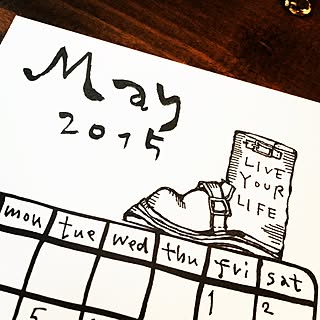 May
2015
LIVE
YOUR
LIFE
mon tue wed thu fri sat
1 2
5